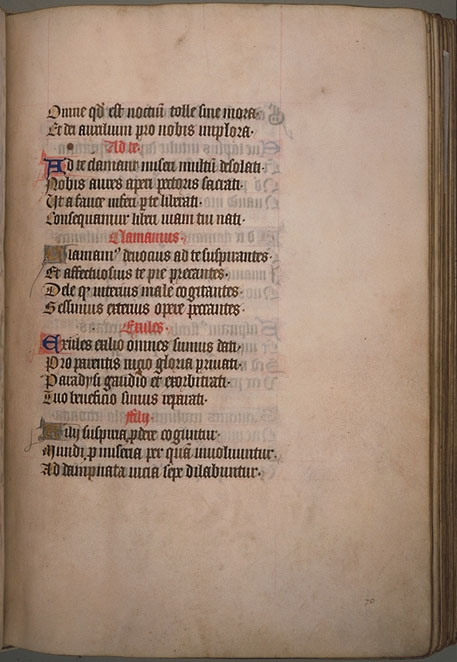 Omne qd est nociuū tolle sine mora·
Et dei auxilium pro nobis implora·
Ad te·
Ad te clamant miseri multū desolati·
Nobis aures aperi pectoris sacrati·
Ut a fauce inferi p te liberati·
Consequamur liberi uiam tui nati·
Clamamus·
Clamam⁹ deuocius ad te suspirantes·
Et affectuosius te pie precantes·
Dole q interius male cogitantes
Gessimus exterius opere peccantes·
Exules·
Exules exilio omnes sumus dati·
Pro parentis uicio gloria priuati·
Paradysi gaudio et exorbitati·
Tuo beneficio simus reparati·
filij·
Filij suspiria pdere coguntur·
Mundi p miseria per quā inuoluuntur·
Ad dampnata uicia sepe dilabuntur·
70